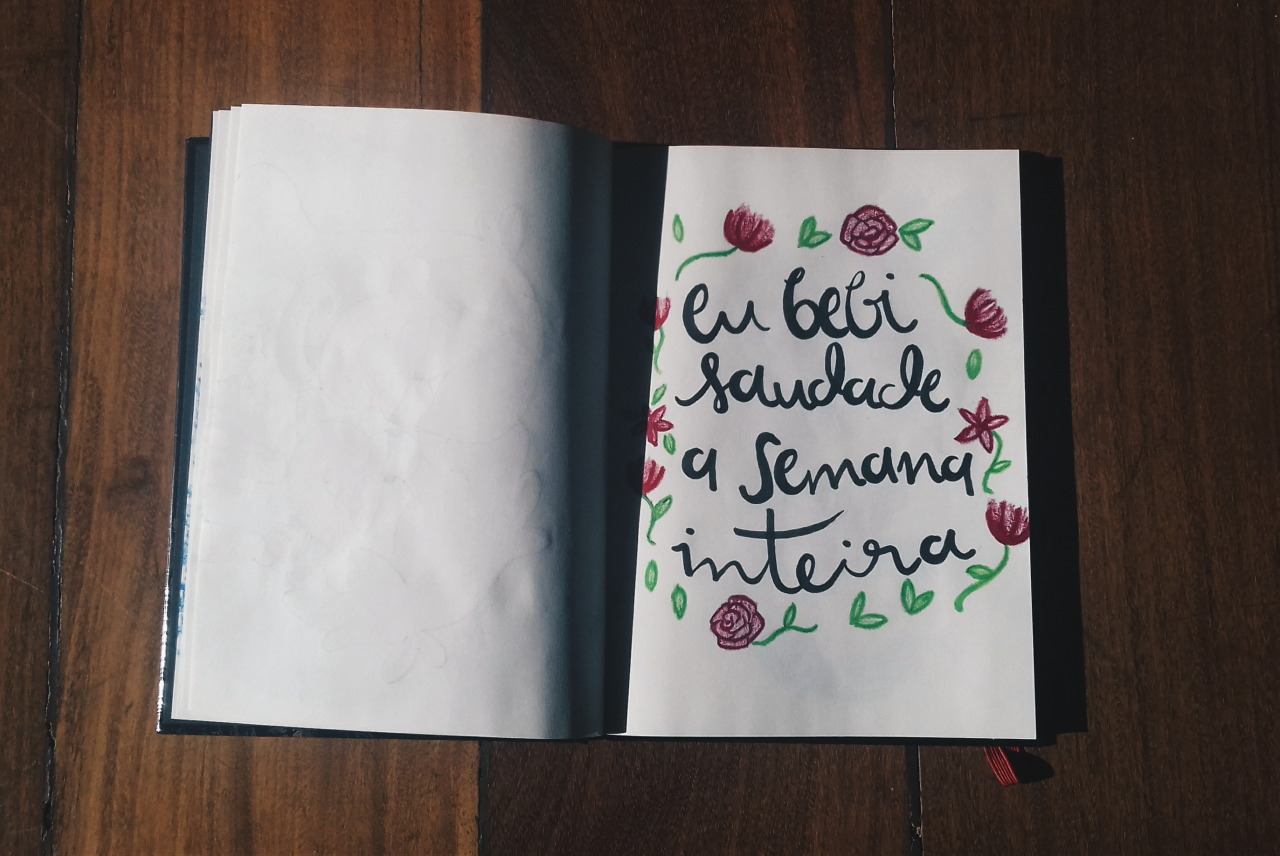 eu bebi
saudade
a semana
inteira